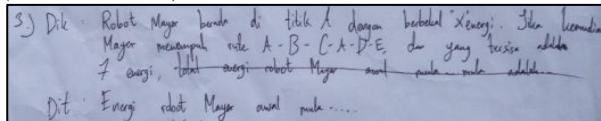 3.) Dik : Robot Mayor berada di titik A dengan berbekal X energi. Jika kemudian
Mayor menempuh rute A - B - C - A - D - E, dan yang tersisa adalah
7 energi, total energi robot Mayor awal mula - mula adalah...
Dit : Energi robot Mayor awal mula .....